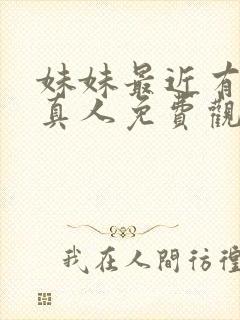 妹妹最近有
真人免費觀
我在人間彷徨